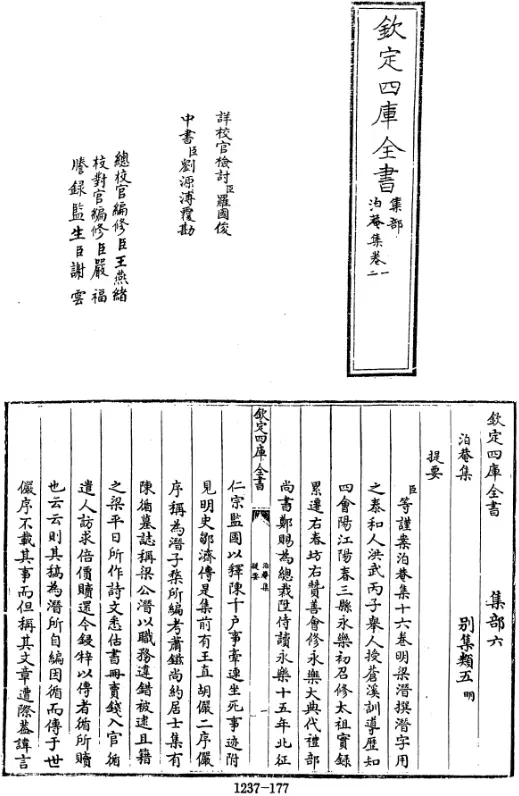 欽定四庫全書
集部
泊菴集卷一
二
詳校官檢討臣羅國俊
中書臣劉源溥覆勘
總校官編修臣王燕緒
校對官編修臣嚴福
謄錄監生臣謝雲
欽定四庫全書 集部六
泊菴集 別集類五 明
提要
臣等謹案泊菴集十六卷明梁潛撰潛字用
之泰和人洪武丙子舉人授蒼溪訓導歷知
四會陽江陽春三縣永樂初召修太祖實錄
累遷右春坊右贊善會修永樂大典代禮部
尚書鄭賜為總裁陞侍讀永樂十五年北征
欽定四庫全書
泊菴集
提要
一
仁宗監國以釋陳千戶事牽連坐死事迹附
見明史鄒濟傳是集前有王直胡儼二序儼
序稱為潛子楘所編考蕭鎡尚約居士集有
陳循墓誌稱梁公潛以職務違錯被逮且籍
之梁平日所作詩文悉估書冊賣錢入官循
遣人訪求倍價贖還令錄梓以傳者循所贖
也云云則其稿為潛所自編因循而傳于世
儼序不載其事而但稱其文章遭際蓋諱言
1237-177